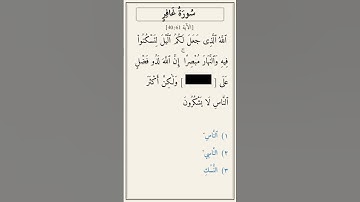 سُورَةُ غَافِرٍ
[الآية 40:61]
ٱللَّهُ ٱلَّذِى جَعَلَ لَكُمُ ٱلَّيْلَ لِتَسْكُنُوا۟
فِيهِ وَٱلنَّهَارَ مُبْصِرًا ۚ إِنَّ ٱللَّهَ لَذُو فَضْلٍ
عَلَى [ ] وَلَٰكِنَّ أَكْثَرَ
ٱلنَّاسِ لَا يَشْكُرُونَ
١) النَّاسِ
٢) النَّاسِي
٣) النُّسُكِ